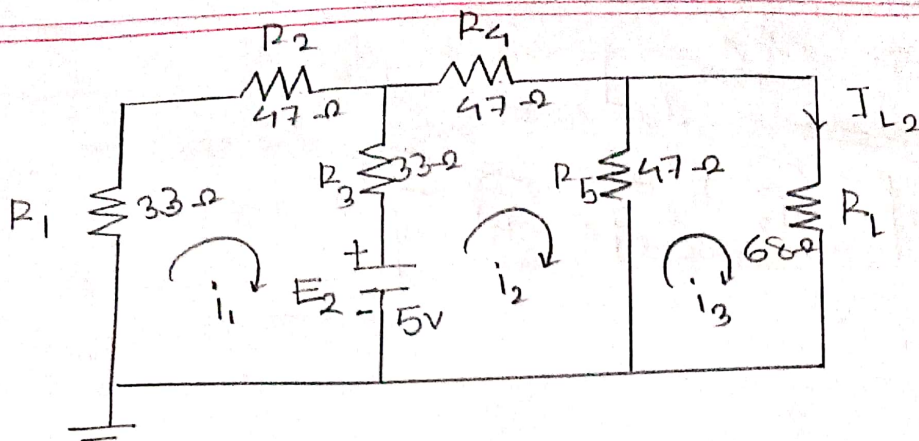 R2 R4
47Ω 47Ω
IL2
R1 33Ω R3 33Ω R5 47Ω RL
68Ω
+
i1 E2 i2 i3
- 5v